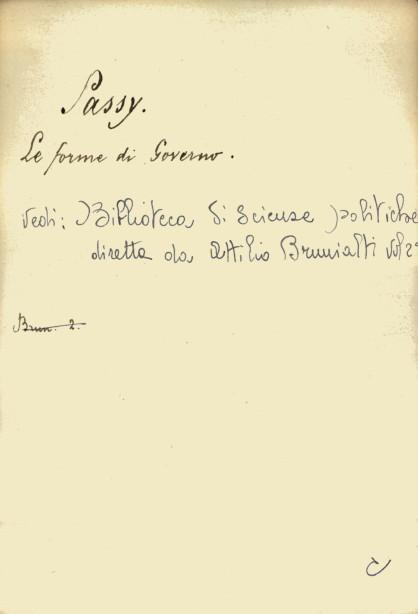 Passy.
Le forme di Governo.
vedi: Biblioteca di Scienze politiche
diretta da Attilio Brunialti vol 2°
Brun. 2.
C